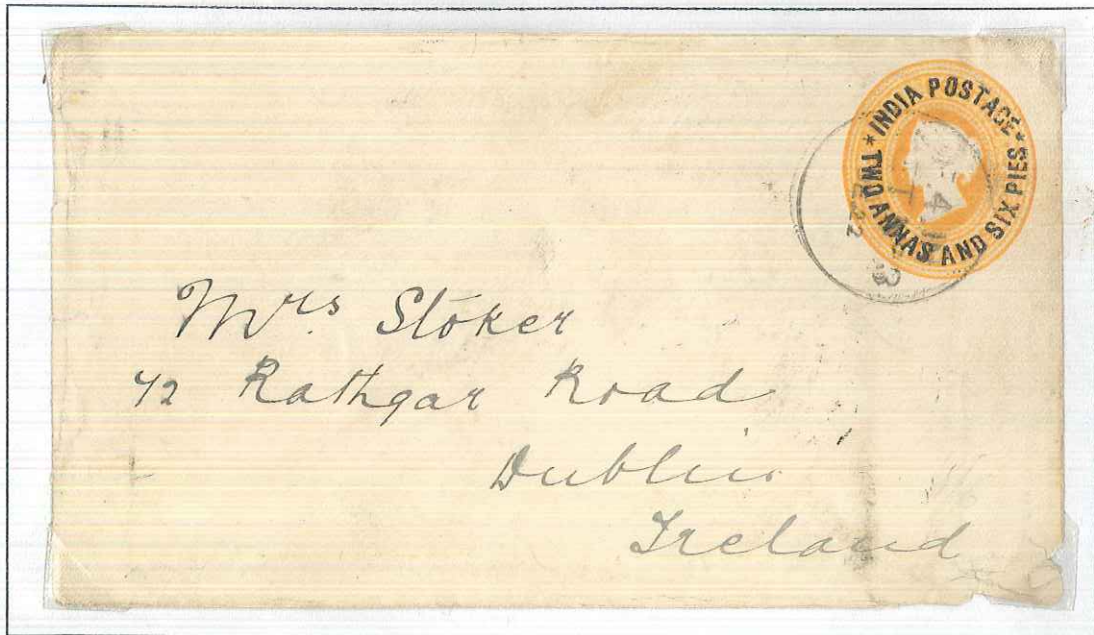 * INDIA POSTAGE *
TWO ANNAS AND SIX PIES
Mrs Stoker
72 Rathgar Road
Dublin
Ireland